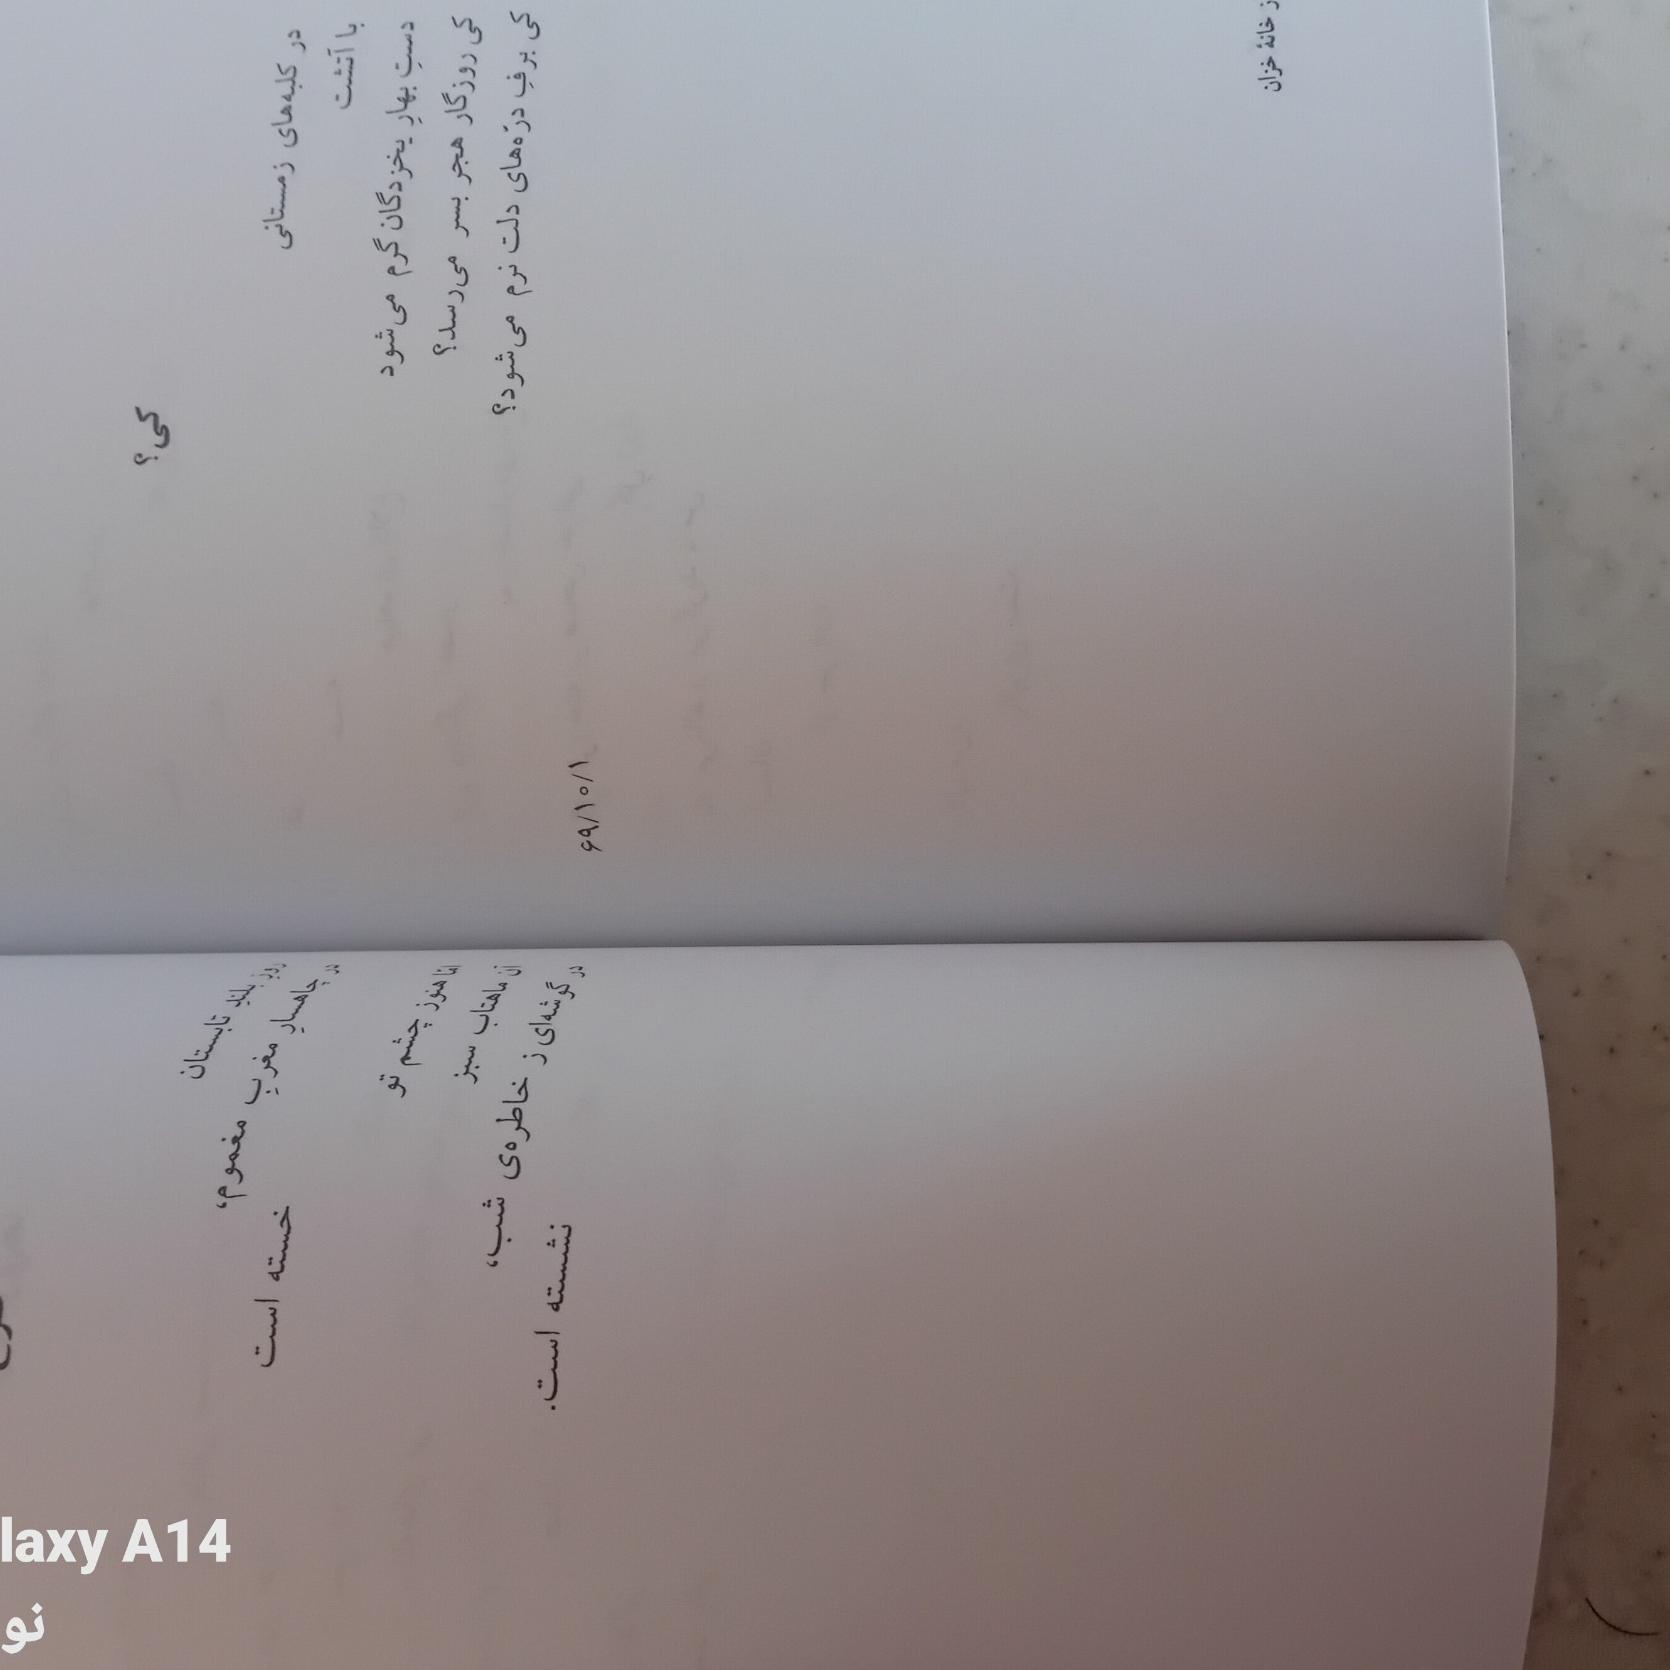 کی؟
در کلبه‌های زمستانی
با آتشت
دستِ بهارِ یخزدگان گرم می‌شود
کی روزگار هجر بسر می‌رسد؟
کی برفِ درّه‌های دلت نرم می‌شود؟
۶۹/۱۰/۱
خانهٔ خزان
روزِ بلندِ تابستان
در چاهسارِ مغربِ مغموم،
خسته است
امّا هنوز چشم تو
آن ماهتاب سبز
در گوشه‌ای ز خاطره‌ی شب،
نشسته است.
laxy A14
نو